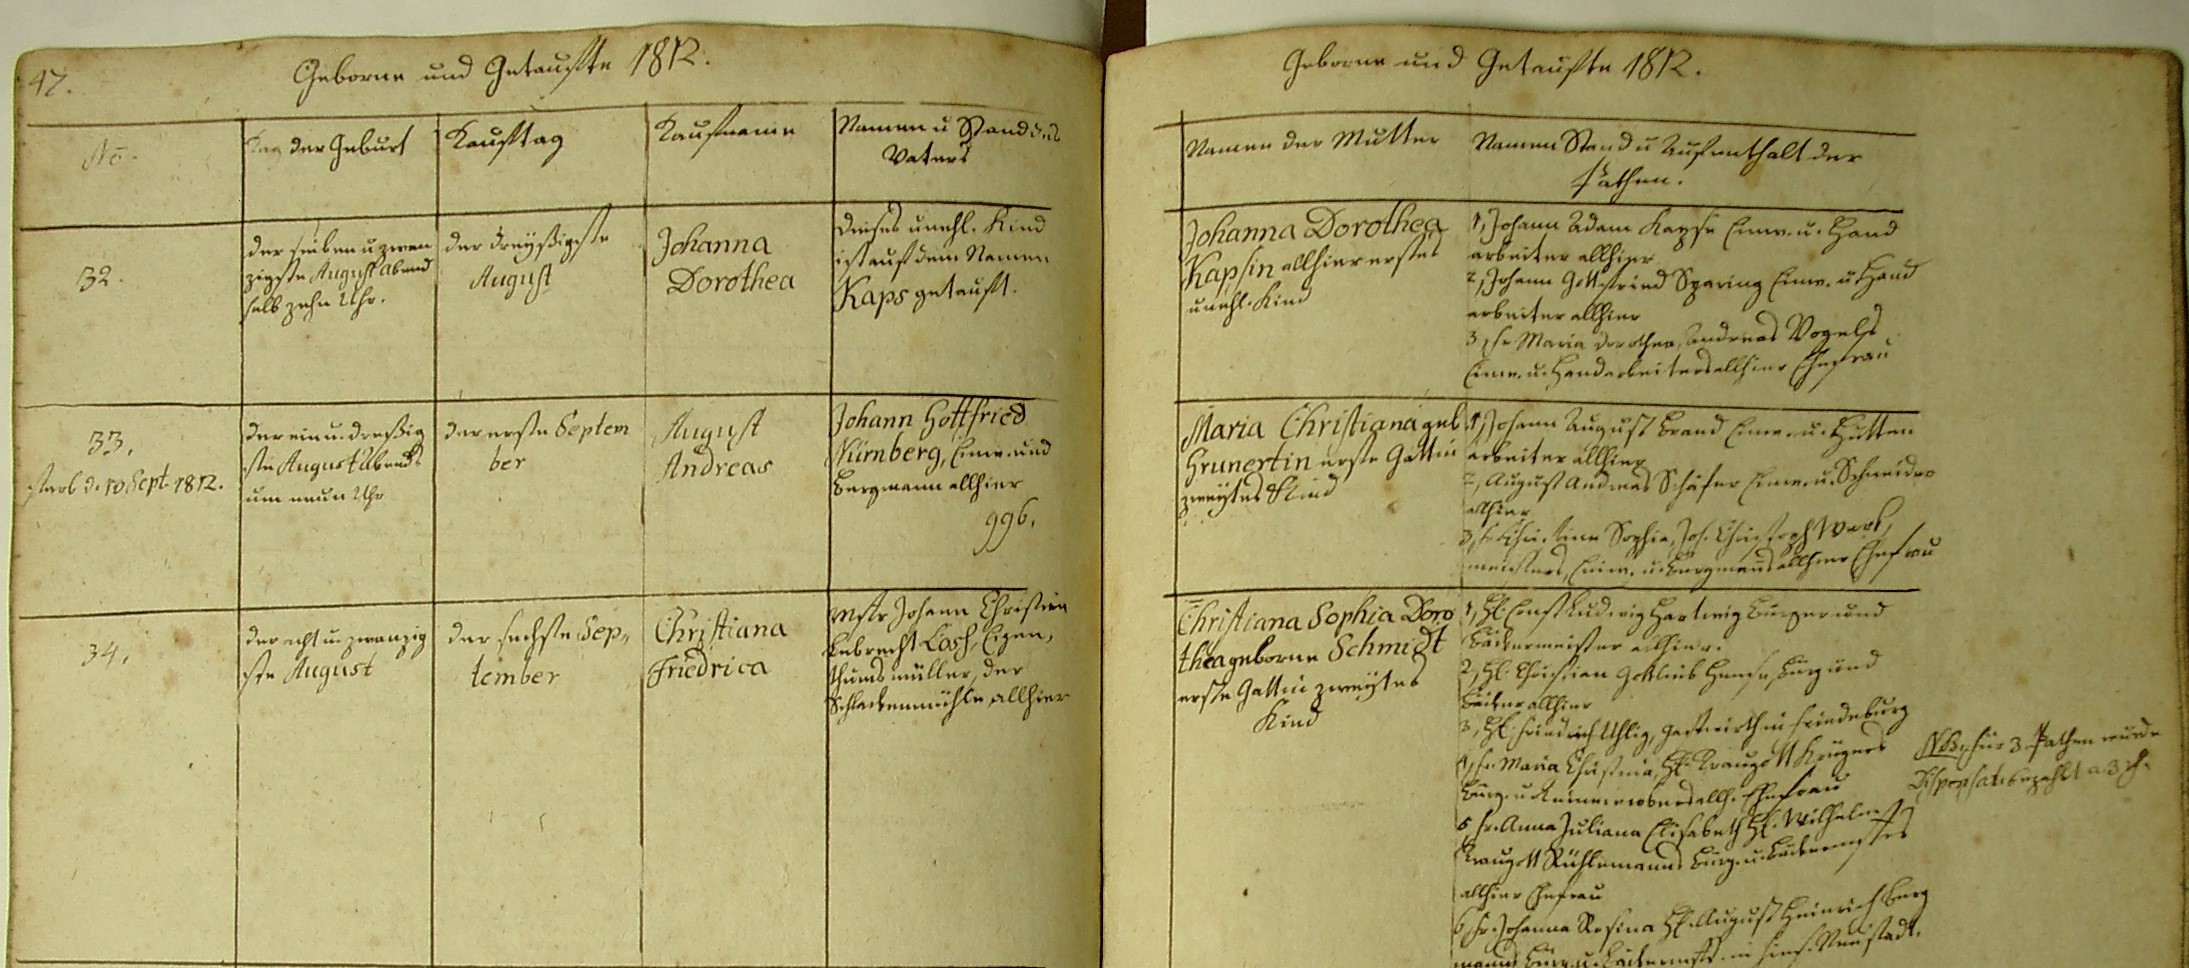 47.
Geborne und Getaufte 1812.
No.
Tag der Geburt
Tauftag
Taufname
Namen u Stand des
Vaters
32.
der sieben u zwan
zigste August abend
halb zehn Uhr.
der dreyßigste
August
Johanna
Dorothea
Dieses unehl. Kind
ist auf dem Namen
Kaps getauft.
33.
starb d. 10 Sept. 1812.
der ein u. dreßig
ste August Abends
um neun Uhr
der erste Septem
ber
August
Andreas
Johann Gottfried
Nürnberg, Einw. und
Bergmann allhier
996.
34.
der acht u. zwanzig
ste August
der sechste Sep„
tember
Christiana
Friedrica
Mstr Johann Christian
Lebrecht Lösch, Eigen„
thums müller, der
Schlackenmühle allhier
Geborne und Getaufte 1812.
Namen der Mutter
Namen Stand u Aufenthalt der
Pathen.
Johanna Dorothea
Kapsin allhier erstes
unehl. Kind
1, Johann Adam Kapse Einw. u. Hand
arbeiter allhier
2, Johann Gottfried Sparing Einw. u. Hand
arbeiter allhier
3, Fr Maria Dorothea, Andreas Vogels
Einw. u. Handarbeiters allhier Ehefrau
Maria Christiana geb.
Grunertin erste Gattin
zweytes Kind
1, Johann August Brand Einw. u. Hütten
arbeiter allhier
2, August Andreas Schäfer Einw. u. Schneider
allhier
3, Fr Christine Sophie, Joh. Christoph Werk„
meisters, Einw. u. Bergmans allhier Ehefrau
Christiana Sophia Doro
thea geborne Schmidt
erste Gattin zweytes
Kind
1, H. Ernst Ludwig Hartwig Bürger und
Bäckermeister allhier.
2, H. Christian Gottlieb Burg und
Bäcker allhier
3, H. Friedrich Uhlig, Gastwirth in Friedeburg
4, Fr. Maria Christina, H. Traugott Krügers
Burg. u. allh. Ehefrau
5 Fr. Anna Juliana Elisabeth H. Wilhelm
Traugott Rühlemanns Burg. u. Bäckermstrs
allhier Ehefrau
6 Fr. Johanna Rosina H. August Heinrich Berg
manns Burg. u. Bäckermstr. in Neustadt.
NB. für 3 Pathen wurde
Dispensat. bezahlt a 3